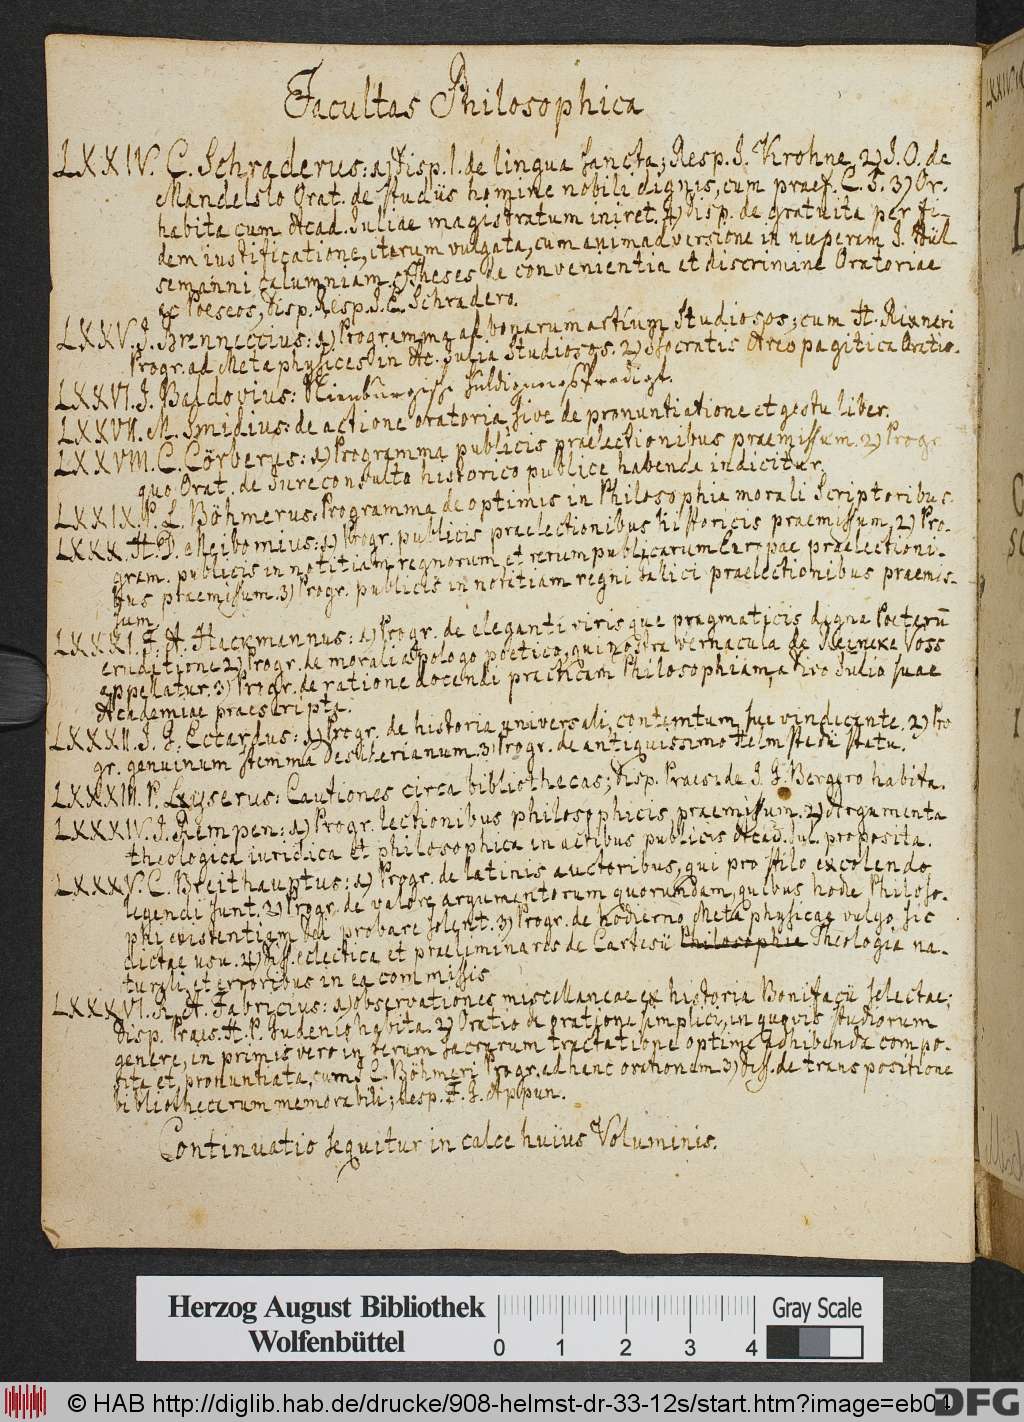 Facultas Philosophica
LXXIV. C. Schraderus: 1) Disp. l. de lingua sancta; Resp. I. Krohne, 2) I. O. de
Mandelslo Orat. de studiis homine nobili dignis, cum praef. C. S. 3) Or.
habita cum Acad. Juliae magistratum iniret. 4) Disp. de gratuita per fi-
dem iustificatione, iterum vulgata, cum animadversione in nuperam I. Hül
semanni calumniam. 5) Theses de convenientia et discrimine Oratoriae
ac Poeseos, Disp. Resp. I. E. Schradero.
LXXV. I. Brenneccius: 1) Programma ad bonarum artium Studiosos; cum H. Rixneri
Progr. ad Metaphysices in Ac. Julia Studiosos. 2) Isocratis Areopagitica Oratio.
LXXVI. I. Baldovius: Nienbürgische Huldigungs Predigt.
LXXVII. M. Smidius: de actione oratoria, sive de pronuntiatione et gestu liber.
LXXVIII. C. Cörberus: 1) Programma publicis praelectionibus praemissum. 2) Progr.
quo Orat. de Jureconsulto historico publice habenda indicitur.
LXXIX. P. L. Böhmerus: Programma de optimis in Philosophia morali Scriptoribus.
LXXX. H. D. Meibomius: 1) Progr. publicis praelectionibus historicis praemissum, 2) Pro-
gram. publicis in notitiam regnorum et rerumpublicarum Europae praelectioni-
bus praemissum. 3) Progr. publicis in notitiam regni Gallici praelectionibus praemis-
sum.
LXXXI. F. A. Hackmannus: 1) Progr. de eleganti virisque pragmaticis digna Poetarū
eruditione 2) Progr. de morali Apologo poetico, qui nostra vernacula de Reineke Voss
appelatur. 3) Progr. de ratione docendi practicam Philosophiam, a Divo Julio suae
Academiae praescripta.
LXXXII. I. G. Eccardus: 1) Progr. de historia universali, contemtum sui vindicante. 2) Pro
gr. genuinum stemma Desiderianum. 3) Progr. de antiquissimo Helmstedii statu.
LXXXIII. P. Lyserus: Cautiones circa bibliothecas; Disp. Praeside I. G. Bergero habita.
LXXXIV. I. Rempen: 1) Progr. lectionibus philosophicis praemissum. 2) Argumenta
theologica iuridica et philosophica in actibus publicis Acad. Jul. proposita.
LXXXV. C. Breithauptus: 1) Progr. de latinis auctoribus, qui pro stilo excolendo
legendi sunt. 2) Progr. de valore argumentorum quorundam, quibus hodie Philoso-
phi existentiam Dei probare solent. 3) Progr. de hodierno Metaphysicae vulgo sic
dictae usu. 4) Diss. eclectica et praeliminaris de Cartesii Philosophia Theologia na-
turali, et erroribus in ea commissis
LXXXVI. R. A. Fabricius: 1) observationes miscellaneae ex historia Bonifacii selectae;
Disp. Praes. H. P. Gudenio habita. 2) Oratio de oratione simplici, in quovis studiorum
genere, in primis vero in rerum sacrarum tractatione optime adhibenda compo-
sita et, pronuntiata, cum I. C. Böhmeri Progr. ad hanc orationem 3) Diss. de transpositione
bibliothecarum memorabili; Resp. F. G. Appun.
Continuatio sequitur in calce huius Voluminis.
Herzog August Bibliothek
Wolfenbüttel
0 1 2 3 4
Gray Scale
© HAB http://diglib.hab.de/drucke/908-helmst-dr-33-12s/start.htm?image=eb04
DFG